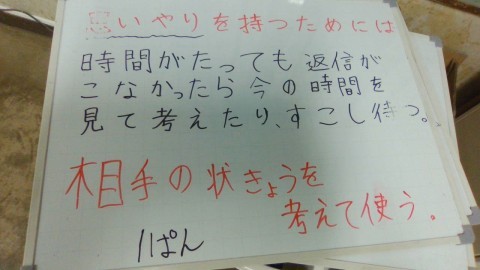 思いやりを持つためには
時間がたっても返信が
こなかったら今の時間を
見て考えたり、すこし待つ。
相手の状きょうを
考えて使う。
1ぱん